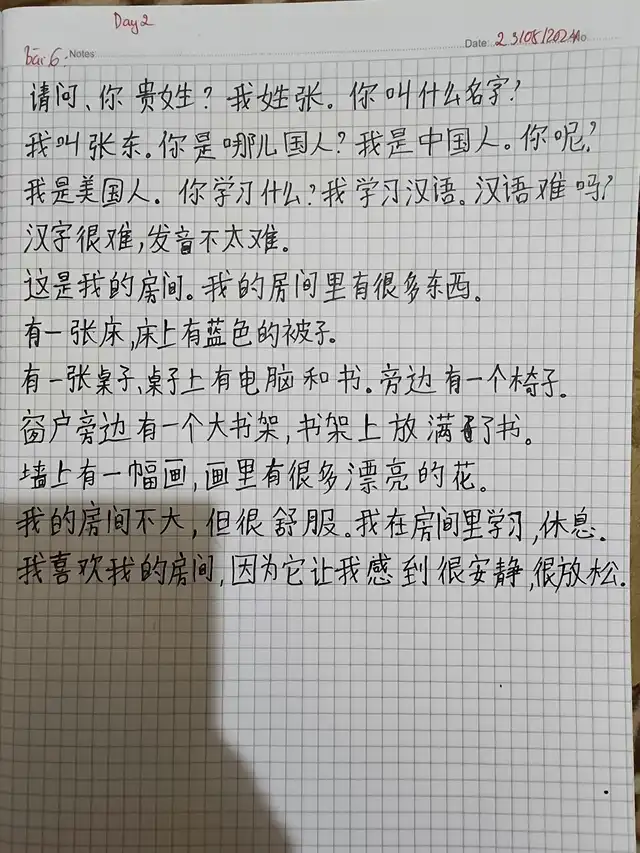 Day 2
Bài 6. Notes
Date: 23/08/2024 No
请问、你贵姓？我姓张。你叫什么名字？
我叫张东。你是哪儿国人？我是中国人。你呢？
我是美国人。你学习什么？我学习汉语。汉语难吗？
汉字很难，发音不太难。
这是我的房间。我的房间里有很多东西。
有一张床，床上有蓝色的被子。
有一张桌子、桌子上有电脑和书。旁边有一个椅子。
窗户旁边有一个大书架，书架上放满了书。
墙上有一幅画，画里有很多漂亮的花。
我的房间不大，但很舒服。我在房间里学习，休息。
我喜欢我的房间，因为它让我感到很安静，很放松.